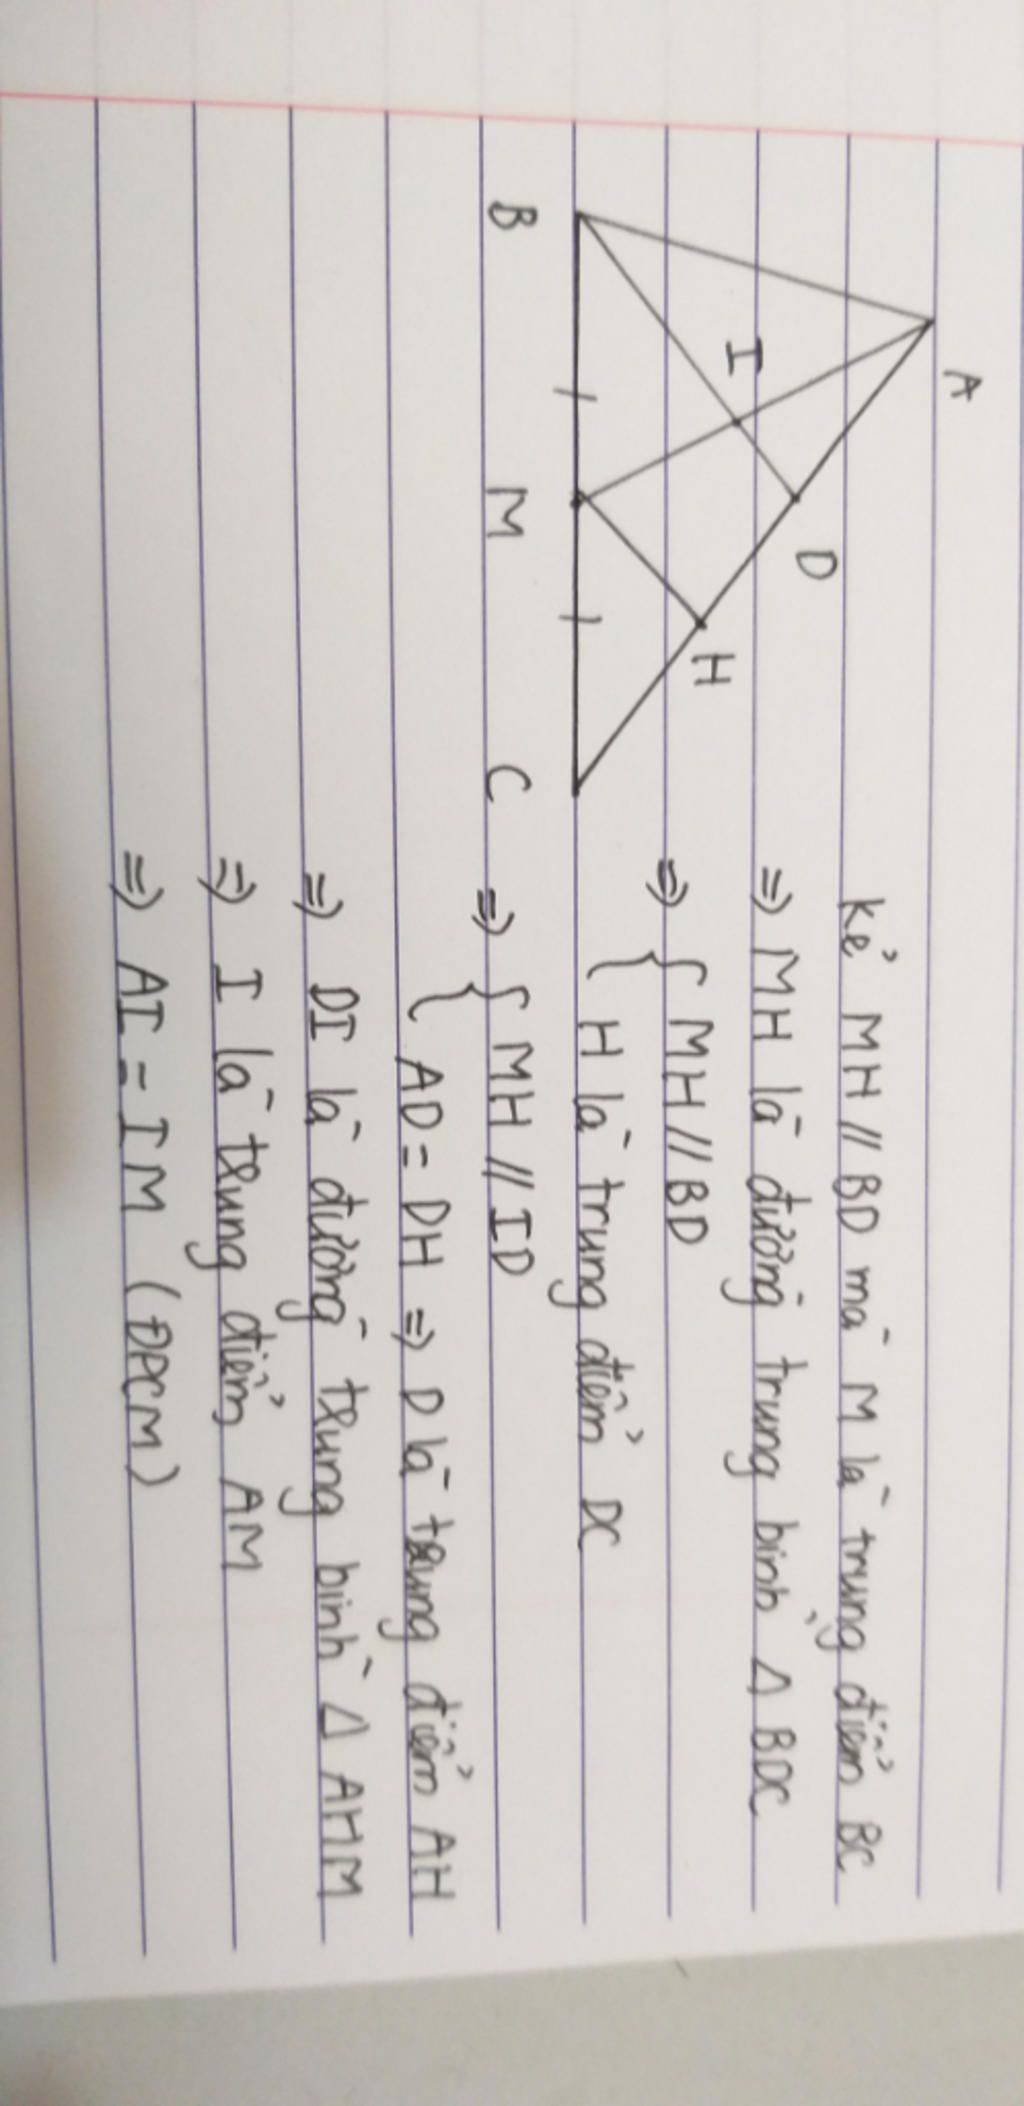 A
I
D
H
B
M
C
kẻ MH // BD mà M là trung điểm BC
=> MH là đường trung bình Δ BDC
=> { MH // BD
H là trung điểm DC
=> { MH // ID
AD = DH => D là trung điểm AH
=> DI là đường trung bình Δ AHM
=> I là trung điểm AM
=> AI = IM (ĐPCM)